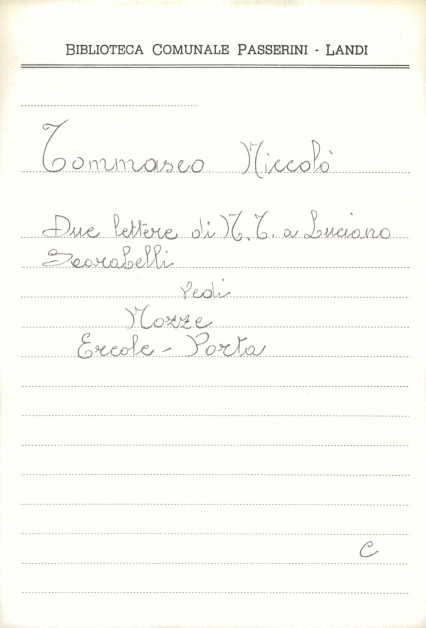 BIBLIOTECA COMUNALE PASSERINI - LANDI
Tommaseo Niccolò
Due lettere di N. T. a Luciano
Scarabelli
vedi
Nozze
Ercole - Porta
C